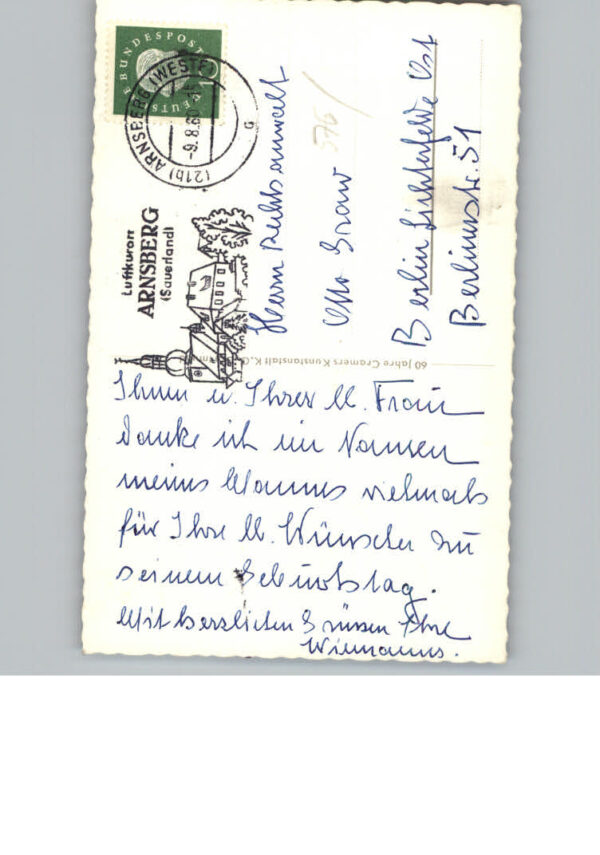 DEUTSCHE BUNDESPOST
(21b) ARNSBERG (WESTF)
-9.8.60
Luftkurort
ARNSBERG
(Sauerland)
Herrn Rechtsanwalt
Otto Graw
Berlin Lichterfelde Ost
Berlinerstr. 51
576
60 Jahre Cramers Kunstanstalt K.G.
Ihnen u. Ihrer lb. Frau
danke ich im Namen
meines Mannes vielmals
für Ihre lb. Wünsche zu
seinem Geburtstag.
Mit herzlichen Grüssen Ihre
Wiemanns.